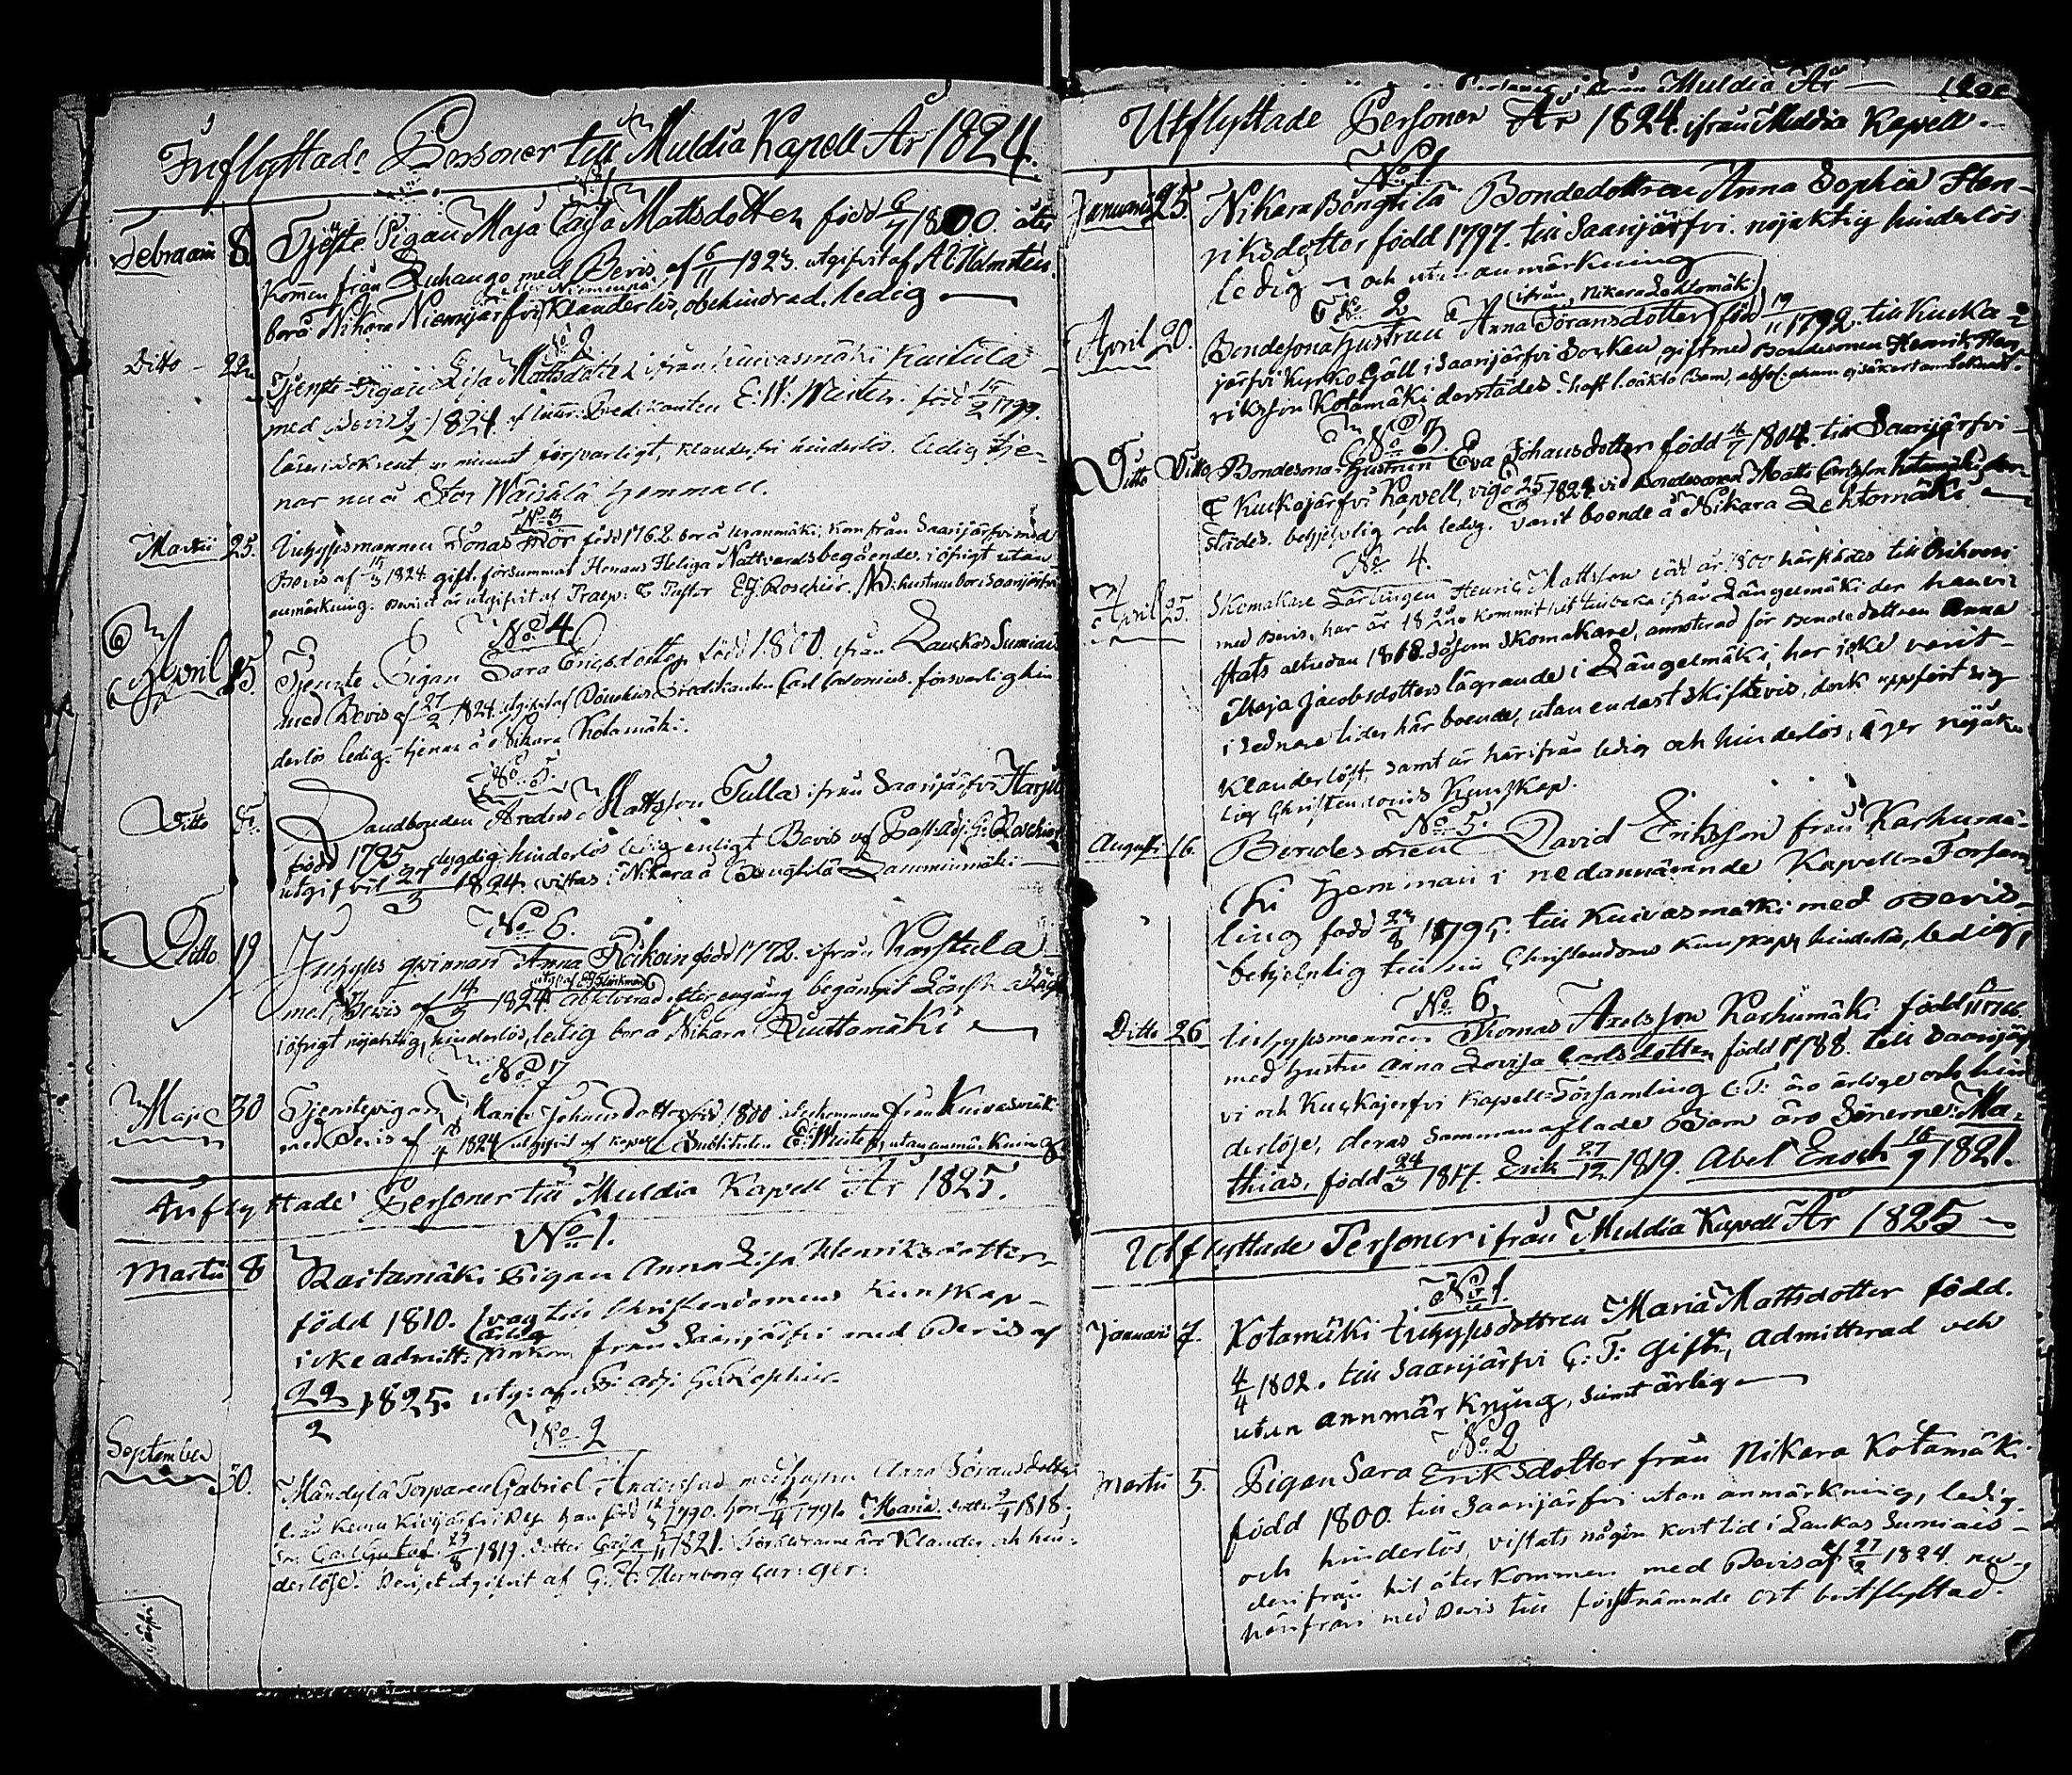 Inflyttade Personer till Muldia Kapell År 1824.
No 1
Februarii 8. Tjenste Pigan Maja Caisa Mattsdotter född 1800. åter
kommen från Luhango med Bevis af 6/11 1823. utgifvit af A. Holmsten.
bor å Nikara Niemijärfvi, klanderlös, obehindrad, ledig —
No 2
Ditto — 22. Tjenste Pigan Lisa Mattsdotter ifrån Kuivasmäki
med Bevis 1824. Predikanten E. W. född 1799.
försvarligt, klanderfri hinderlös. ledig tje-
nar nu å Stor Wäisälä hemman.
No 3
Martii 25. Inhysesmannen Jonas Mör född 1762. bor å Uranmäki, kom från Saarijärfvi med
Bevis af 1824. gift. försummat Herrans Heliga Nattvards begående. i öfrigt utan
anmärkning. Beviset är utgifvit af Praep. & Pastor E. J. Roschier. NB: hustrun bor i Saarijärfvi
No 4
April 15. Tjenste Pigan Sara Ericsdotter född 1800. ifrån Laukas Sumiais
med Bevis af 27/2 1824. utgifvit af Predikanten Carl Calonius. försvarlig hin
derlös ledig. tjenar å Nikara Kotamäki.
No 5.
Ditto Landbonden Anders Mattsson Tulla ifrån Saarijärfvi Harju
född 1795 dygdig hinderlös ledig enligt Bevis af Past. Adj. G. Roschier
utgifvit 27/3 1824. vistas i Nikara å Bengtilä Lamminmäki —
No 6.
Ditto 19 Inhyses qvinnan Anna född 1772. ifrån Karstula
med Bevis af 14/3 1824. absolverad efter en gång begånget Lönsk
i öfrigt nöjaktig, hinderlös, ledig bor å Nikara Ruuttamäki —
No 7
Maji 30 Tjenstepigan Maria Johansdotter född 1800 återkommen från Kuivasmäki
med Bevis af 1824 utgifvit af Kapell Substituten E. utan anmärkning
Inflyttade Personer till Muldia Kapell År 1825.
No 1.
Martii 8 Raitamäki Pigan Anna Lisa Henriksdotter
född 1810. svag till Christendomens Kunskap
ärlig
icke admitt: ankom från Saarijärfvi med Bevis af
22/2 1825. utg: af adj. G. Roschier.
No 2
September 30. Mändylä Torparen Gabriel Andersson med hustru Anna Göransdotter
från Kemi Kivijärfvi han född 1790. hon 1791. Maria dotter 1818.
Son Carl Gustaf 27/8 1819. dotter Caisa 1821. Föräldrarne äro Klander och hin-
derlöse. Beviset utgifvit af
Utflyttade Personer År 1824. ifrån Muldia Kapell.
No 1.
Januarii 25. Nikara Bängtilä Bondedottren Anna Sophia Hen-
riksdotter född 1797. till Saarijärfvi. nöjaktig hinderlös
ledig och utan anmärkning
No 2
ifrån Nikara Lehtomäki
April 20. Bondesona Hustrun Anna Göransdotter född 19/11 1792. till Kucka-
järfvi Kyrko Gjäll i Saarijärfvi Socken gift med Bondesonen Henrik Hen-
riksson Kotamäki derstädes. haft 1. oäkta Barn,
No 3
Ditto Ditto Bondesona Hustrun Eva Johansdotter född 1804. till Saarijärfvi
& Kuckajärfvi Kapell, vigd 25/3 1824 vid Bondesonen Matts Carlsson Kotamäki der-
städes. behjelplig och ledig. Varit boende å Nikara Lehtomäki —
No 4.
April 25. Skomakare Lärlingen Henric Mattsson född år 1800 härstädes till Orihvesi
med Bevis, har år 1822. kommit hit tillbaka ifrån Längelmäki der han vi-
stats altsedan 1818. såsom Skomakare, annoterad för Bondedottren Anna
Maja Jacobsdotters lägrande i Längelmäki, har icke varit
i sednare tider här boende, utan endast skiftevis, dock uppfört sig
Klanderlöst, samt är härifrån ledig och hinderlös, äger nöjak-
lig Christendoms Kunskap.
No 5.
Augusti 16. Bondesonen David Eriksson från Karhumä-
ki Hemman i nedannämnde Kapells Försam-
ling född 23/8 1795. till Kuivasmäki med Bevis,
behjelplig till sin Christendoms kunskap, hinderlös, ledig,
No 6.
Ditto 26 Inhysesmannen Thomas Axelsson Karhumäki född 1766.
med hustru Anna Lovisa Carlsdotter född 1788. till Saarijär
vi och Kuckajerfvi Kapells Församling C. T: äro ärlige och hin
derlöse, deras sammanaflade Barn äro Sönerne: Ma-
thias, född 24/3 1817. Erik 27/12 1819. Abel Enoch 18/9 1821.
Utflyttade Personer ifrån Muldia Kapell År 1825 —
No 1.
Januarii 7. Kotamäki Inhysesdottren Maria Mattsdotter född.
4/4 1802. till Saarijärfvi C: T: Gift, admitterad och
utan anmärkning, samt ärlig —
No 2
Martii 5. Pigan Sara Eriksdotter från Nikara Kotamäki
född 1800. till Saarijärfvi utan anmärkning, ledig
och hinderlös, vistats någon kort tid i Laukas Sumiais
derifrån hit åter kommen med Bevis af 27/2 1824. nu
härifrån med Bevis till förstnämnde ort bortflyttad.